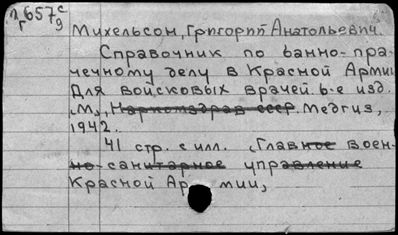 п657с
г 9
Михельсон, Григорий Анатольевич.
Справочник по банно-пра-
чечному делу в Красной Армии
Для войсковых врачей. 6-е изд.
М., Наркомздрав СССР. Медгиз,
1942.
41 стр. с илл. (Главное воен-
но-санитарное управление
Красной Армии)